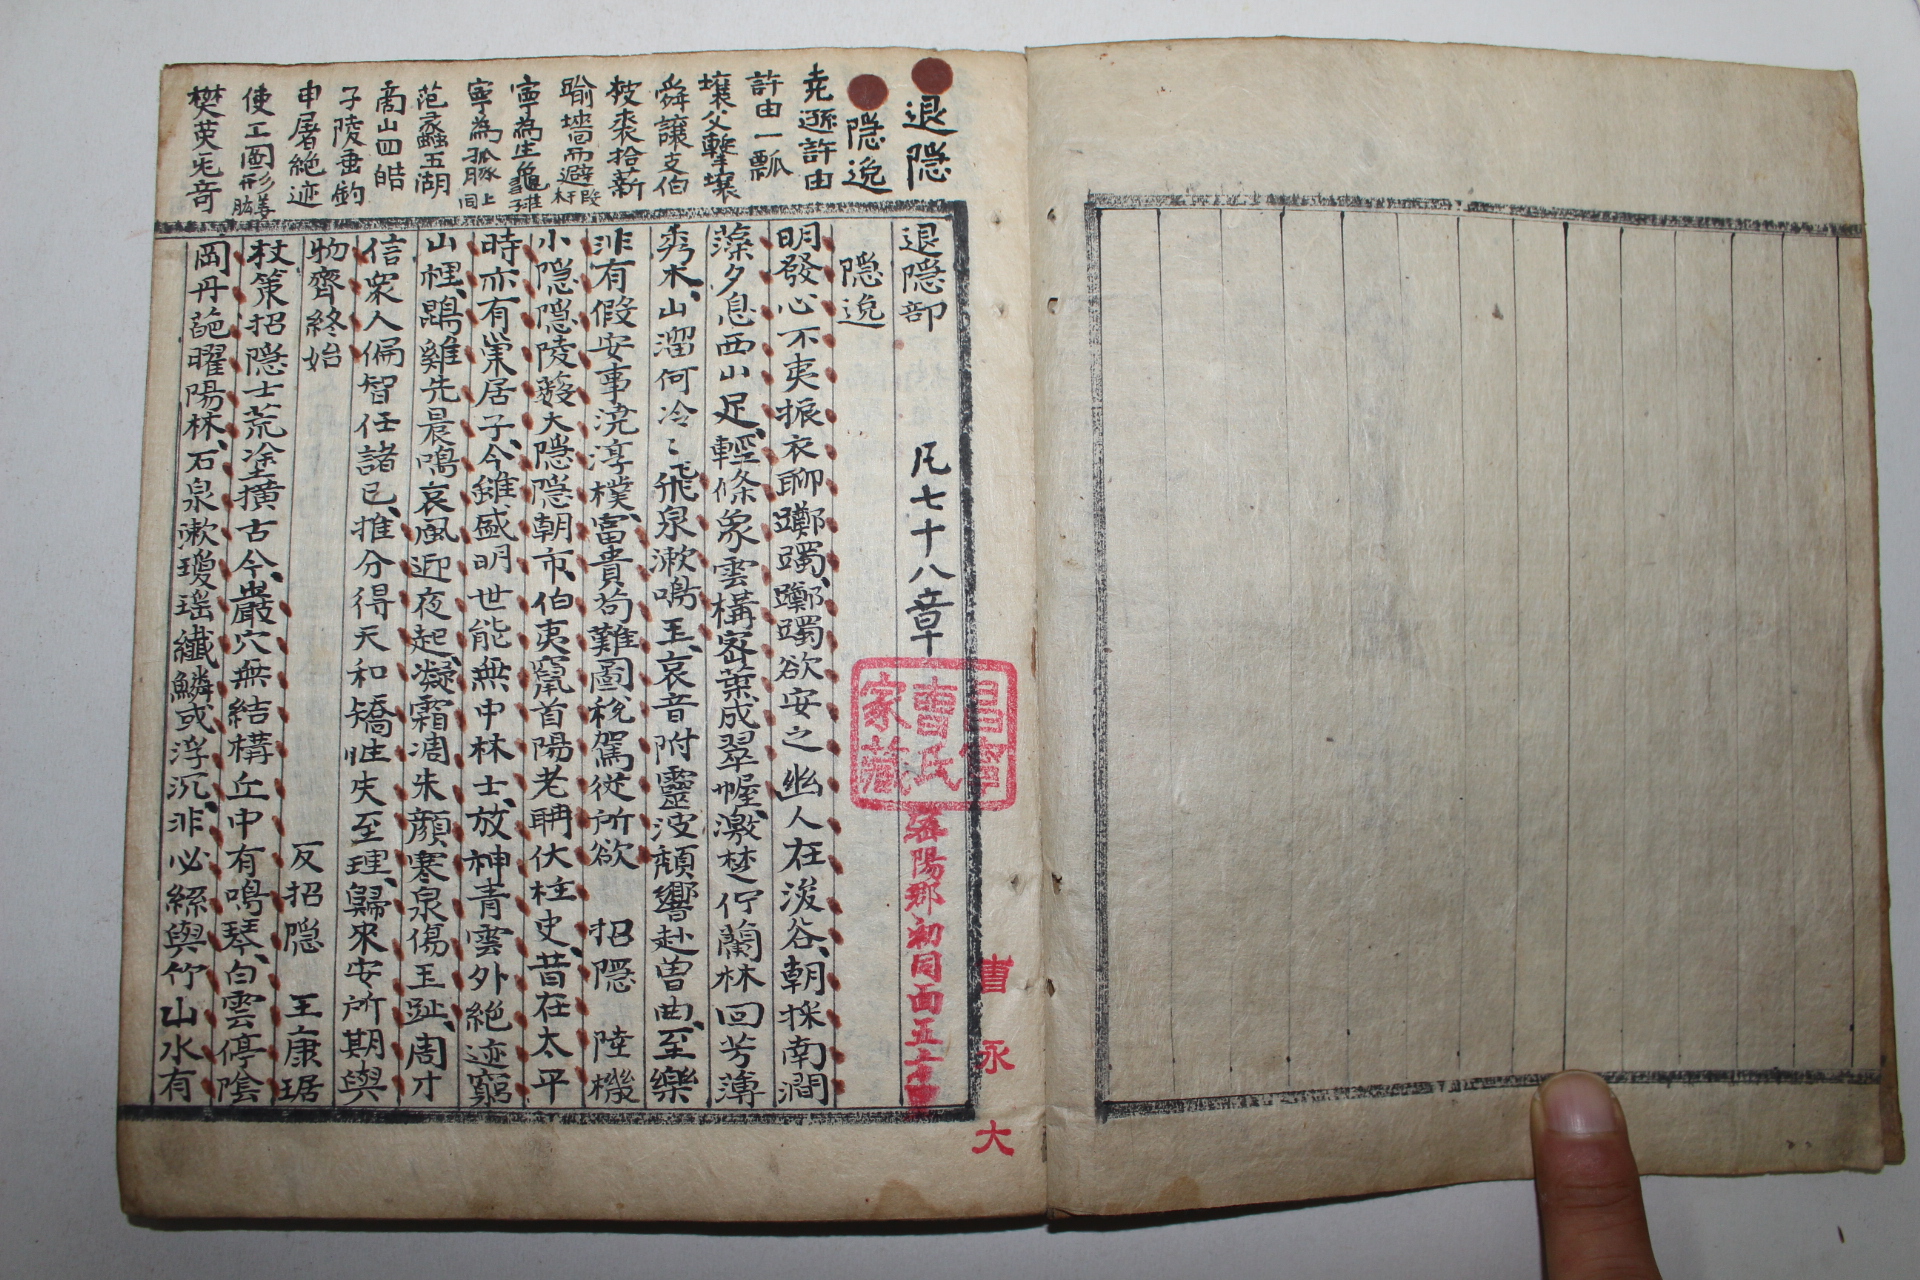 退隐
隐逸
尭遜許由
許由一瓢
壤父擊壤
舜讓支伯
披裘拾薪
踰墻而避段干木
寧為生龜莊子
寧為孤豚上同
范蠡五湖
商山四皓
子陵垂釣
申屠絶迹
使工圖形姜肱
樊英先竒
退隐部 凡七十八章
隐逸
明發心不夷振衣聊躑躅躑躅欲安之幽人在浚谷朝採南澗
藻夕息西山足輕條象雲構密葉成翠幄激楚佇蘭林回芳薄
秀木山溜何冷〻飛泉漱鳴玉哀音附靈波頽響赴曽曲至樂
非有假安事澆淳樸富貴苟難圖稅駕従所欲 招隐 陸機
小隐隐陵薮大隐隐朝市伯夷竄首陽老聃伏柱史昔在太平
時亦有巢居子今雖盛明世能無中林士放神青雲外絶迹窮
山裡鵾雞先晨鳴哀風迎夜起凝霜凋朱顔寒泉傷玉趾周才
信衆人偏智任諸已推分得天和矯性失至理歸來安所期與
物齊終始 反招隐 王康琚
杖策招隐士荒塗横古今巖穴無結構丘中有鳴琴白雲停陰
岡丹葩曜陽林石泉漱瓊瑶纖鱗或浮沉非必絲與竹山水有
昌寧
曺氏
家藏
陽郡初同面五
曺永大